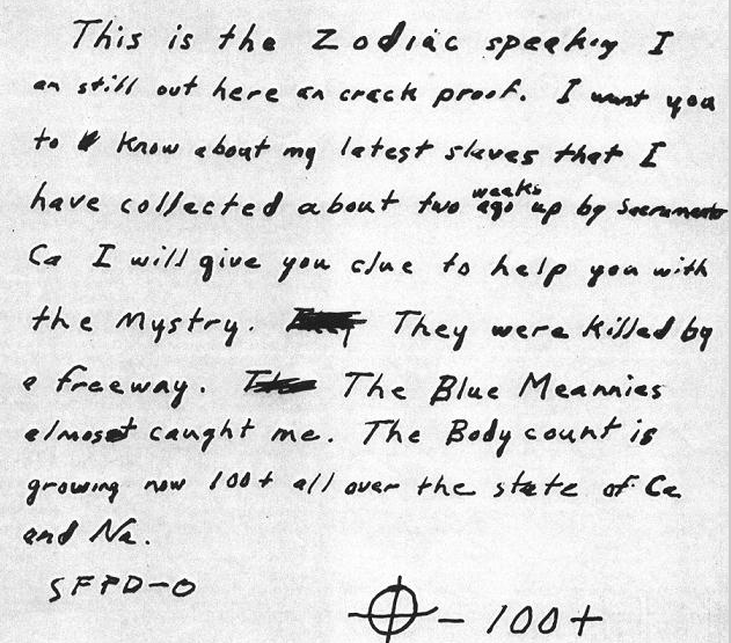 This is the Zodiac speaking I
am still out here an crack proof. I want you
to know about my latest slaves that I
have collected about two weeks ago up by Sacramento
Ca I will give you clue to help you with
the Mystry. They were killed by
a freeway. The Blue Meannies
almoset caught me. The Body count is
growing now 100+ all over the state of Ca
and Na.
SFPD-0
- 100+